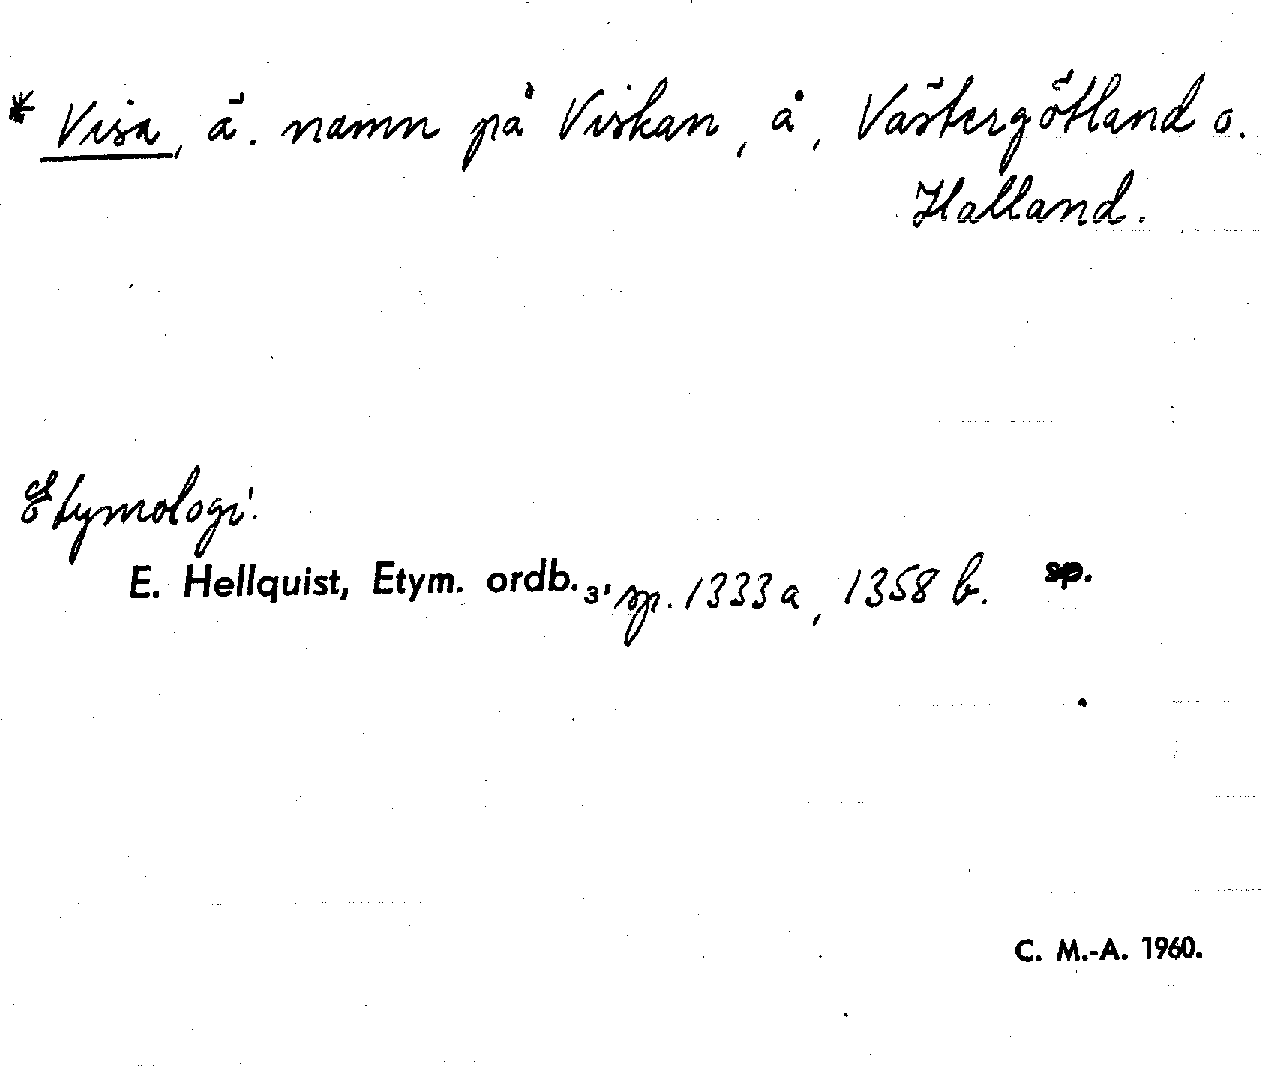 * Visa, ä. namn på Viskan, å, Västergötland o.
Halland.
Etymologi:
E. Hellquist, Etym. ordb.3, sp. 1333 a, 1358 b. sp.
C. M.-A. 1960.